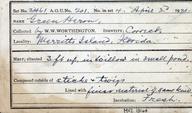 No. 3461 A.O.U. No. 201 No. in set 4. April 3d
NAME Green Heron.
Collected by W. W. WORTHINGTON. Identity, Correct
Locality, Merritts Island, Florida.
Nest; situated 3 ft. up in willows in small pond.
Composed outside of sticks & twigs
Lined with finer material of same kind
Incubation: Fresh.